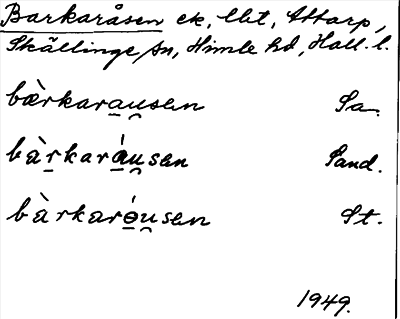 Barkaråsen ek, Ubt, Attarp,
Skällinge sn, Himle hd, Hall. l.
bæ̀rkarau̯sen Sa.
bàrkaráu̯sen Sand.
bàrkaróu̯sen St.
1949.